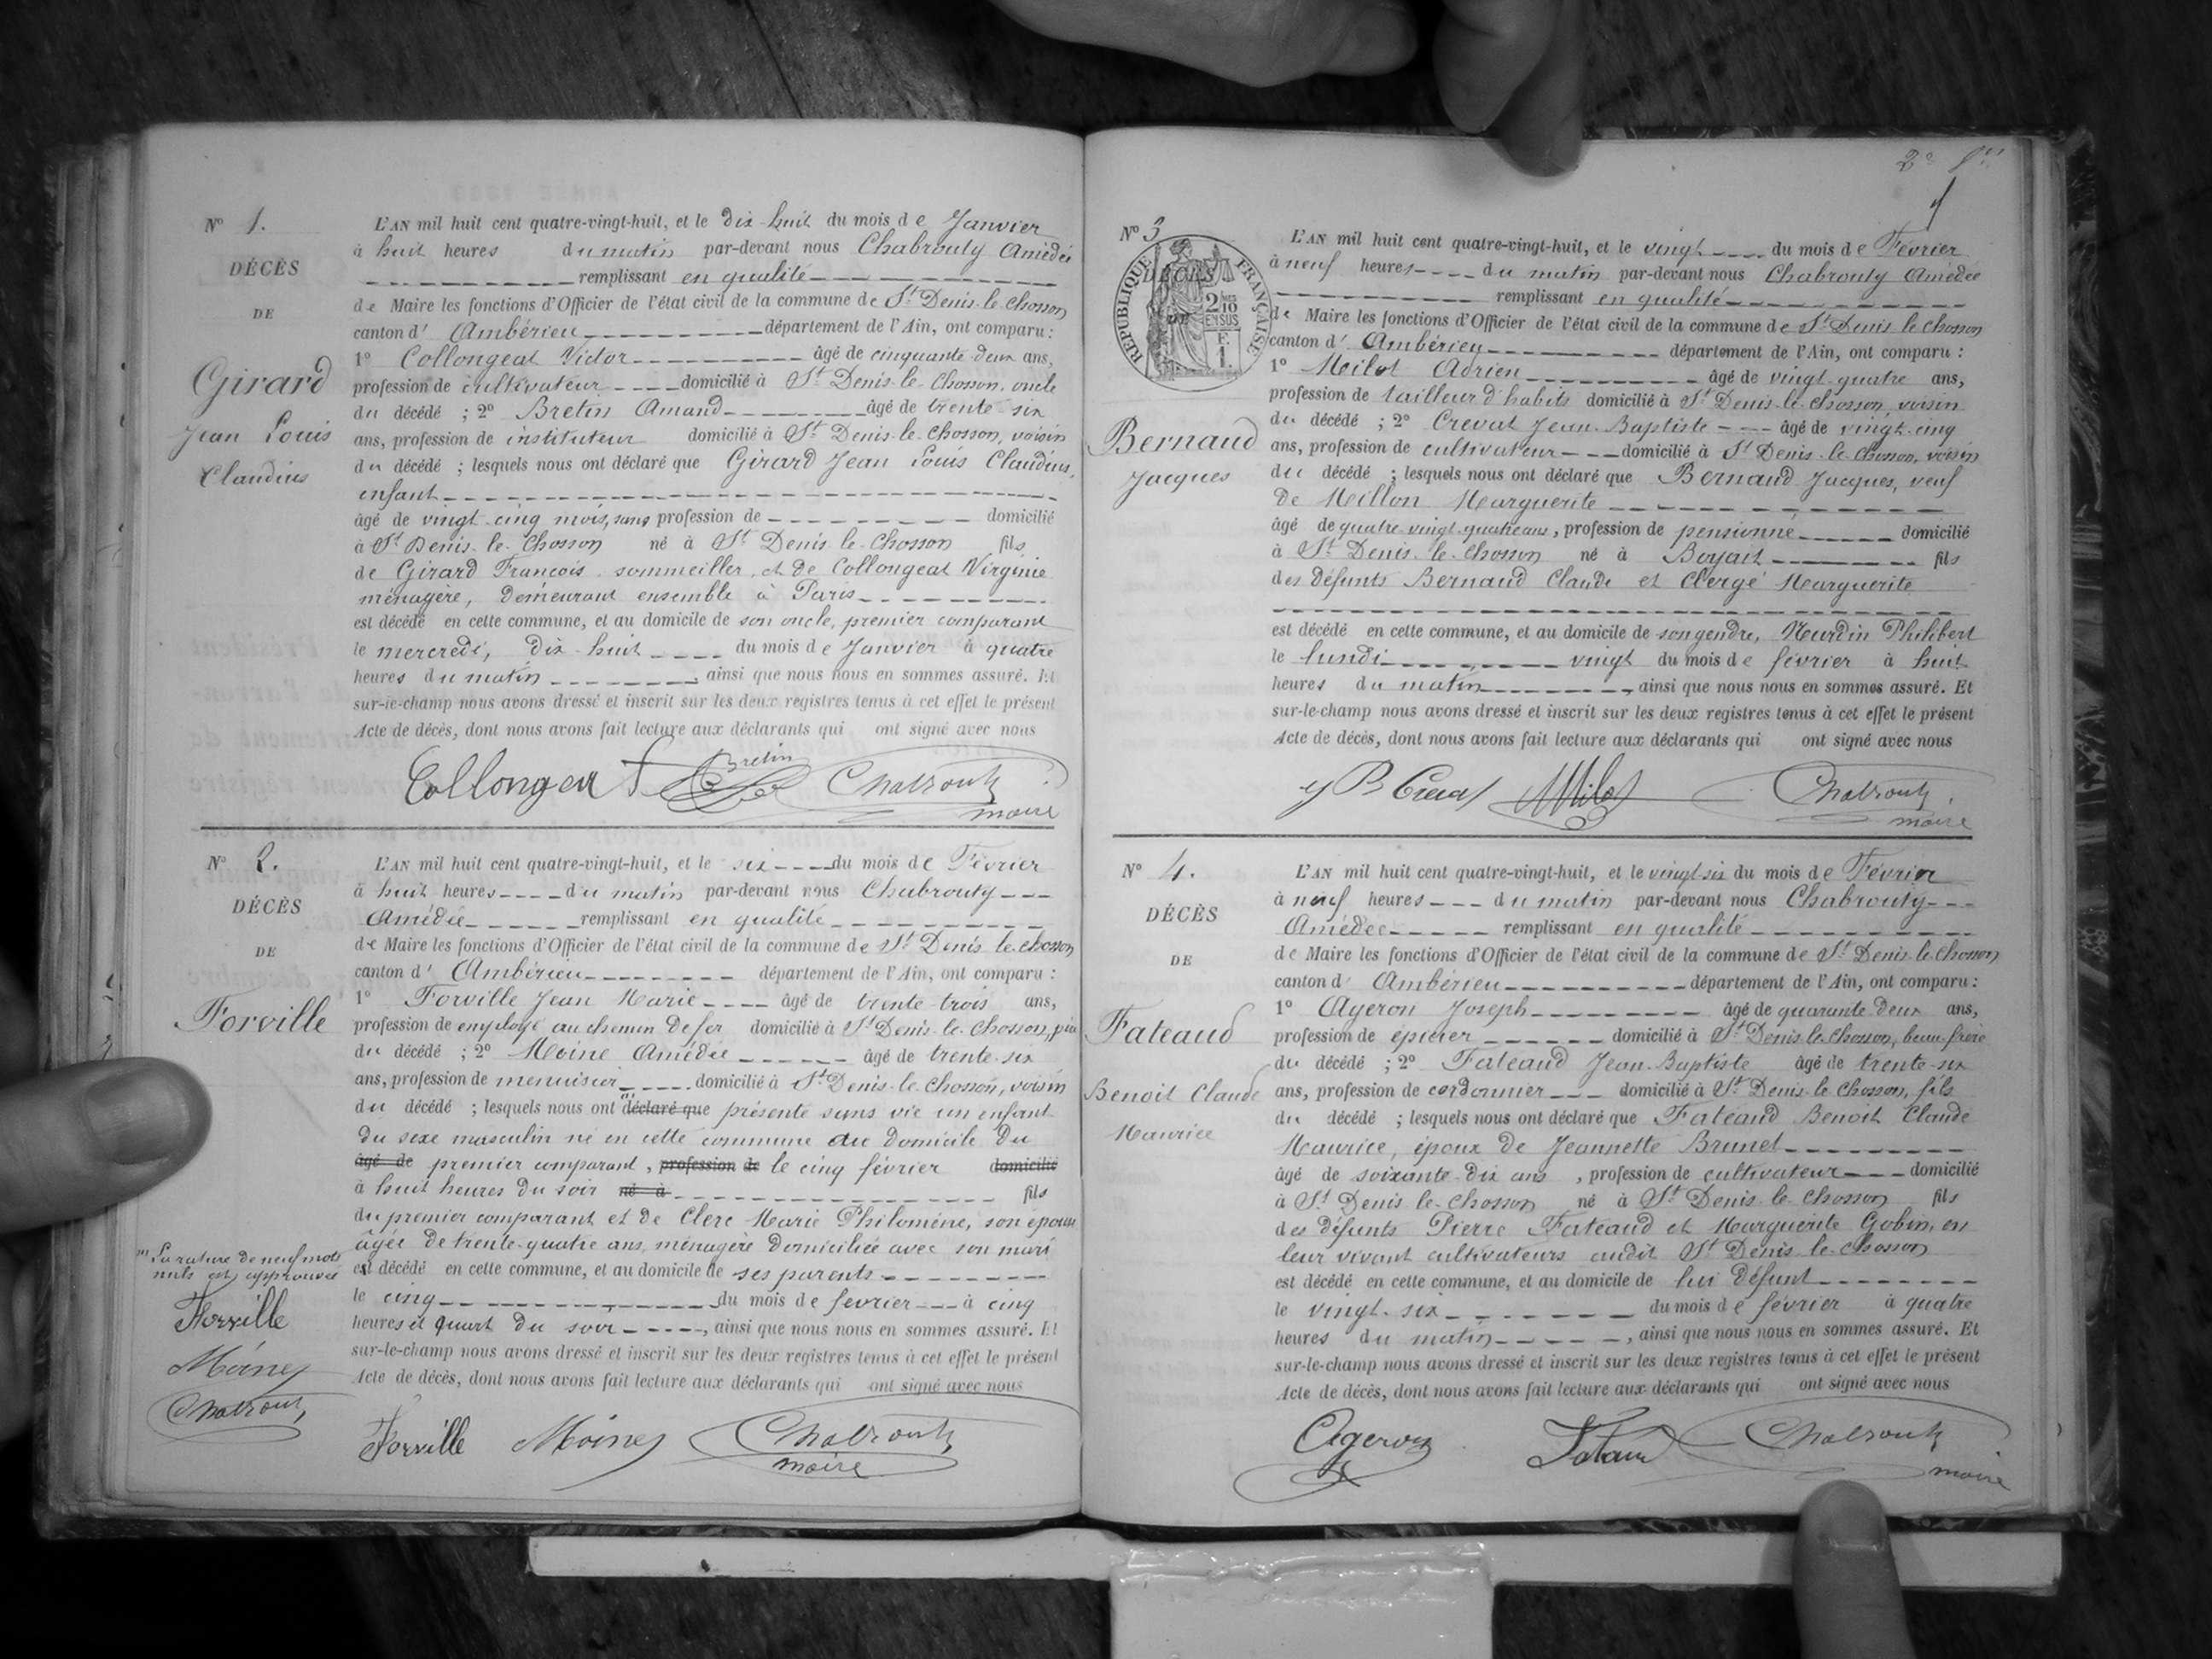 N° 1.
DÉCÈS
DE
Girard
Jean Louis
Claudius
L'AN mil huit cent quatre-vingt-huit, et le dix-huit du mois de Janvier
à huit heures du matin par-devant nous Chabrouty Amédée
remplissant en qualité
de Maire les fonctions d'Officier de l'état civil de la commune de St Denis-le-Chosson
canton d' Ambérieu département de l'Ain, ont comparu :
1° Collongeat Victor âgé de cinquante-deux ans,
profession de cultivateur domicilié à St Denis-le-Chosson, oncle
du décédé ; 2° Bretin Amand âgé de trente-six
ans, profession de instituteur domicilié à St Denis-le-Chosson, voisin
du décédé ; lesquels nous ont déclaré que Girard Jean Louis Claudius,
enfant
âgé de vingt-cinq mois, sans profession de domicilié
à St Denis-le-Chosson né à St Denis-le-Chosson fils
de Girard François, sommeiller, et de Collongeat Virginie
ménagère, demeurant ensemble à Paris
est décédé en cette commune, et au domicile de son oncle, premier comparant
le mercredi, dix-huit du mois de Janvier à quatre
heures du matin, ainsi que nous nous en sommes assuré. Et
sur-le-champ nous avons dressé et inscrit sur les deux registres tenus à cet effet le présent
Acte de décès, dont nous avons fait lecture aux déclarants qui ont signé avec nous
Collongeat Bretin Chabrouty
maire
N° 2.
DÉCÈS
DE
Forville
L'AN mil huit cent quatre-vingt-huit, et le six du mois de Février
à huit heures du matin par-devant nous Chabrouty
Amédée remplissant en qualité
de Maire les fonctions d'Officier de l'état civil de la commune de St Denis-le-Chosson
canton d' Ambérieu département de l'Ain, ont comparu :
1° Forville Jean Marie âgé de trente-trois ans,
profession de employé au chemin de fer domicilié à St Denis-le-Chosson, père
du décédé ; 2° Moine Amédée âgé de trente-six
ans, profession de menuisier domicilié à St Denis-le-Chosson, voisin
du décédé ; lesquels nous ont déclaré que présenté sans vie un enfant
du sexe masculin né en cette commune au domicile du
âgé de premier comparant, profession de le cinq février domicilié
à huit heures du soir né à fils
du premier comparant et de Clerc Marie Philomène, son épouse
âgée de trente-quatre ans, ménagère domiciliée avec son mari
est décédé en cette commune, et au domicile de ses parents
le cinq du mois de février à cinq
heures et quart du soir, ainsi que nous nous en sommes assuré. Et
sur-le-champ nous avons dressé et inscrit sur les deux registres tenus à cet effet le présent
Acte de décès, dont nous avons fait lecture aux déclarants qui ont signé avec nous
(1) La rature de neuf mots
nuls est approuvée
Forville
Moine
Chabrouty
Forville Moine Chabrouty
maire
2e
N° 3
RÉPUBLIQUE FRANÇAISE
2/10 EN SUS
F. 1.
Bernaud
Jacques
L'AN mil huit cent quatre-vingt-huit, et le vingt du mois de Février
à neuf heures du matin par-devant nous Chabrouty Amédée
remplissant en qualité
de Maire les fonctions d'Officier de l'état civil de la commune de St Denis le Chosson
canton d' Ambérieu département de l'Ain, ont comparu :
1° Milot Adrien âgé de vingt-quatre ans,
profession de tailleur d'habits domicilié à St Denis-le-Chosson, voisin
du décédé ; 2° Crevat Jean-Baptiste âgé de vingt-cinq
ans, profession de cultivateur domicilié à St Denis-le-Chosson, voisin
du décédé ; lesquels nous ont déclaré que Bernaud Jacques, veuf
de Millon Marguerite
âgé de quatre-vingt-quatre ans, profession de pensionné domicilié
à St Denis-le-Chosson né à fils
des défunts Bernaud Claude et Clergé Marguerite
est décédé en cette commune, et au domicile de son gendre, Philibert
le lundi vingt du mois de février à huit
heures du matin, ainsi que nous nous en sommes assuré. Et
sur-le-champ nous avons dressé et inscrit sur les deux registres tenus à cet effet le présent
Acte de décès, dont nous avons fait lecture aux déclarants qui ont signé avec nous
J B Crevat Milot Chabrouty
maire
N° 4.
DÉCÈS
DE
Fateaud
Benoit Claude
Maurice
L'AN mil huit cent quatre-vingt-huit, et le vingt-six du mois de Février
à neuf heures du matin par-devant nous Chabrouty
Amédée remplissant en qualité
de Maire les fonctions d'Officier de l'état civil de la commune de St Denis-le-Chosson
canton d' Ambérieu département de l'Ain, ont comparu :
1° Ageron Joseph âgé de quarante-deux ans,
profession de épicier domicilié à St Denis-le-Chosson, beau-frère
du décédé ; 2° Fateaud Jean-Baptiste âgé de trente-six
ans, profession de cordonnier domicilié à St Denis-le-Chosson, fils
du décédé ; lesquels nous ont déclaré que Fateaud Benoit Claude
Maurice, époux de Jeannette Brunet
âgé de soixante-dix ans, profession de cultivateur domicilié
à St Denis le Chosson né à St Denis-le-Chosson fils
des défunts Pierre Fateaud et Marguerite Gobin, en
leur vivant cultivateurs audit St Denis-le-Chosson
est décédé en cette commune, et au domicile de lui défunt
le vingt-six du mois de février à quatre
heures du matin, ainsi que nous nous en sommes assuré. Et
sur-le-champ nous avons dressé et inscrit sur les deux registres tenus à cet effet le présent
Acte de décès, dont nous avons fait lecture aux déclarants qui ont signé avec nous
Ageron Fateaud Chabrouty
maire